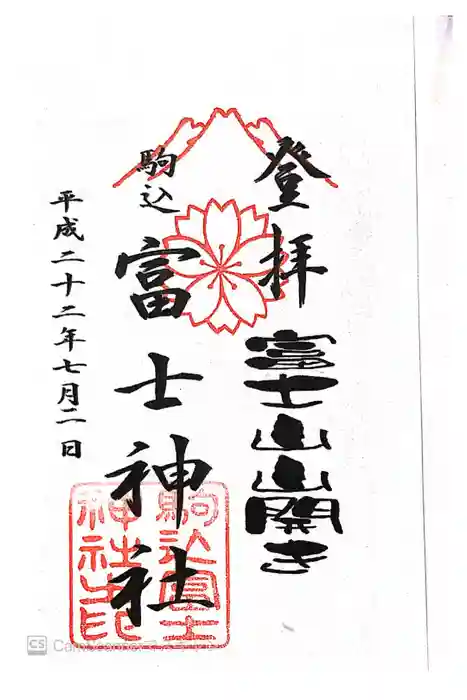 登拝
富士山山開き
駒込
富士神社
平成二十二年七月二日
駒込富士
神社之印
CS CamScanner